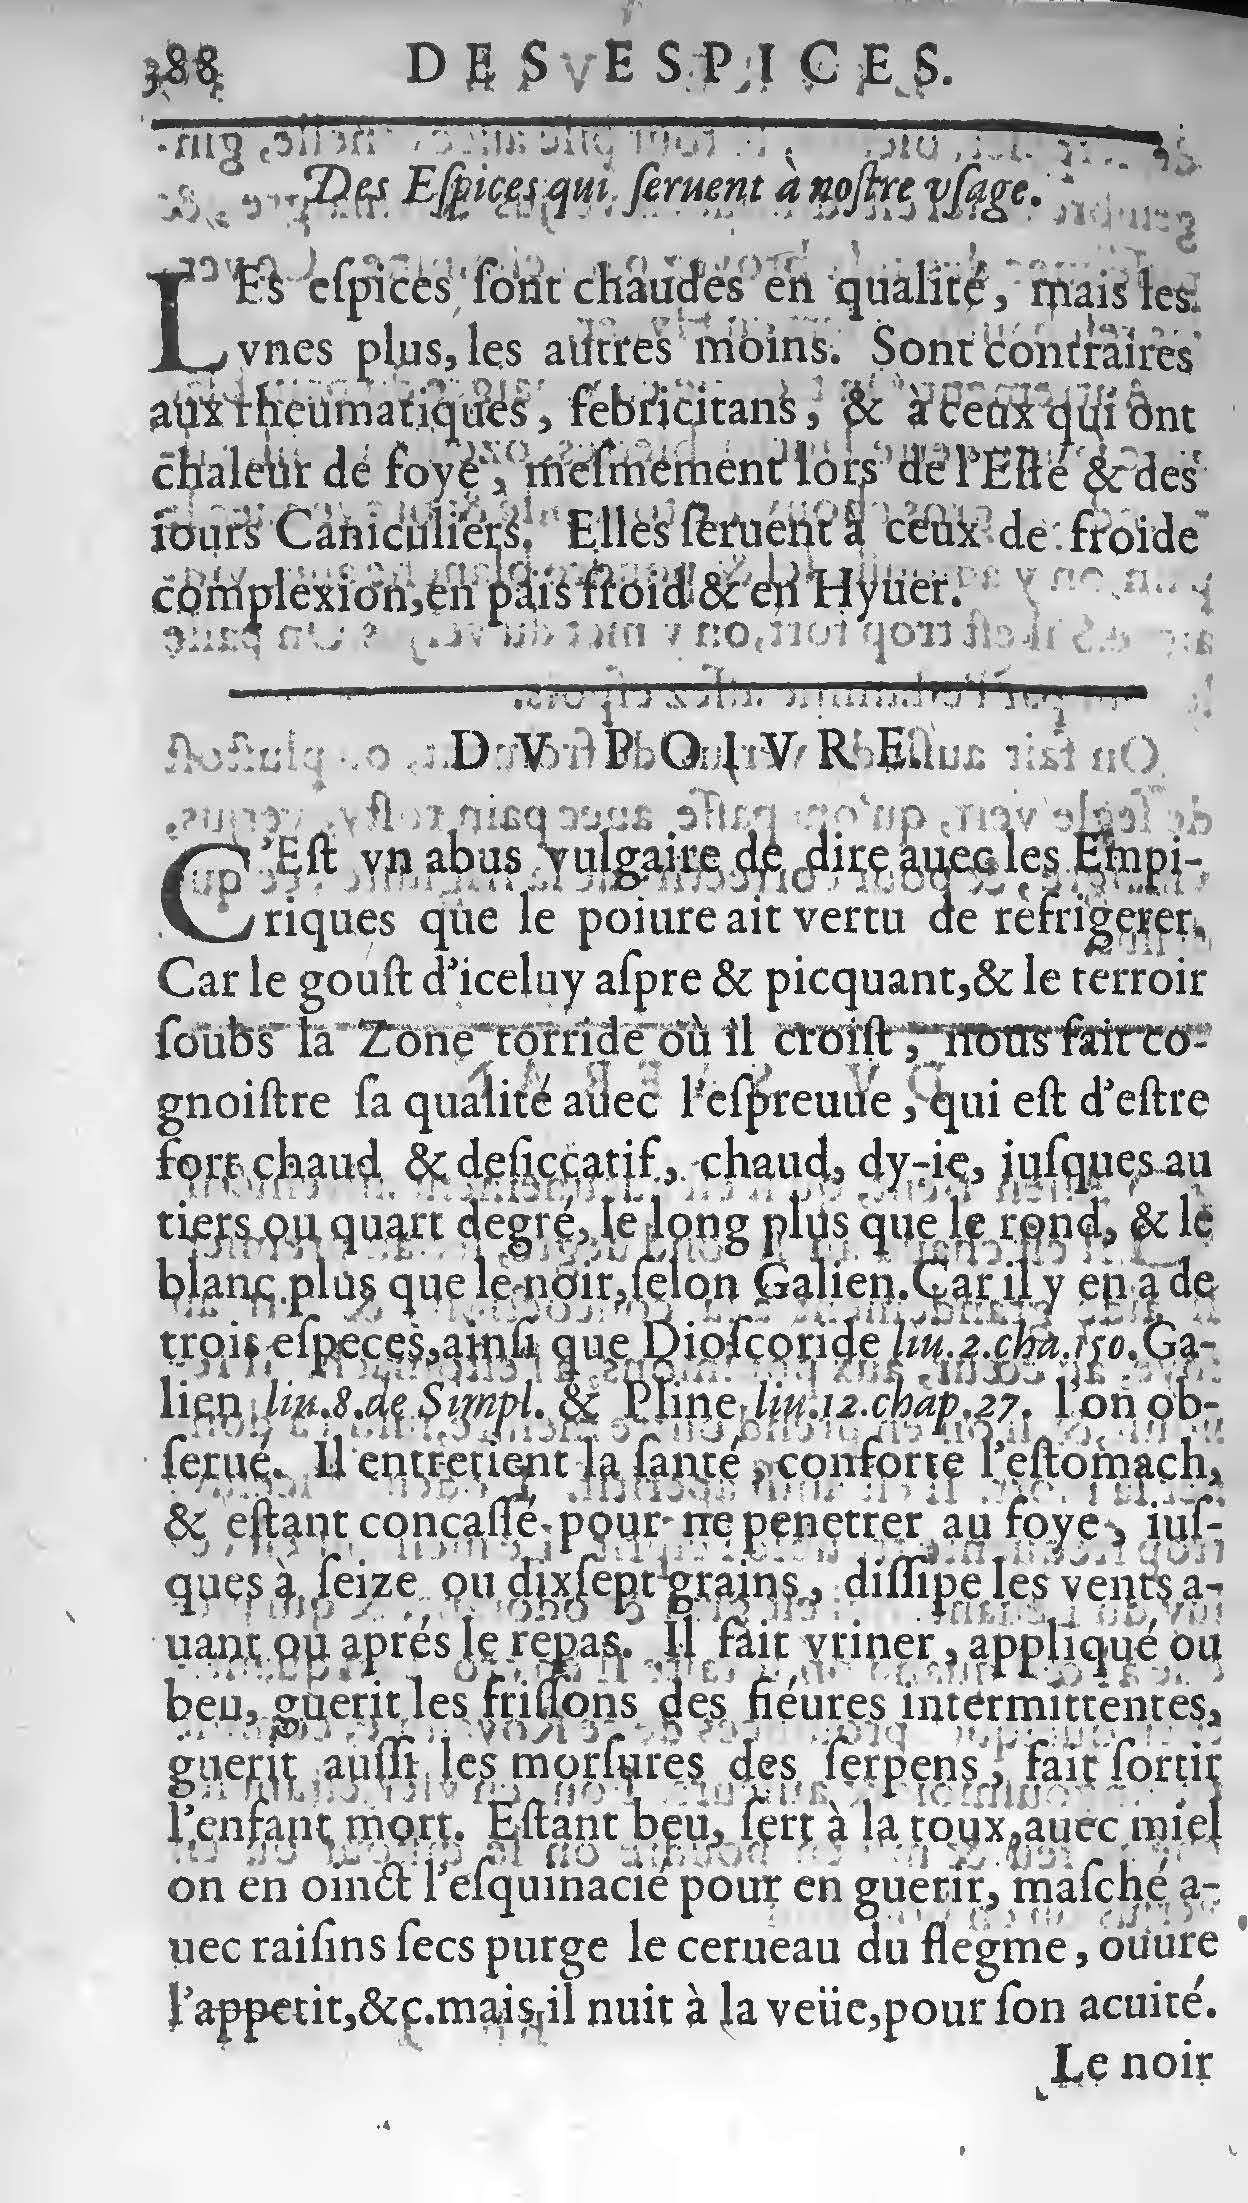 388 DES ESPICES.
Des Eſpices qui ſeruent à noſtre vſage.
LEs eſpices ſont chaudes en qualité, mais les
vnes plus, les autres moins. Sont contraires
aux rheumatiques, febricitans, & à ceux qui ont
chaleur de foye, meſmement lors de l'Eſté & des
iours Caniculiers. Elles ſeruent à ceux de froide
complexion, en païs froid & en Hyuer.
DV POIVRE.
C'Eſt vn abus vulgaire de dire auec les Empi-
riques que le poiure ait vertu de refrigerer.
Car le gouſt d'iceluy aſpre & picquant, & le terroir
ſoubs la Zone torride où il croiſt, nous fait co-
gnoiſtre ſa qualité auec l'eſpreuue, qui eſt d'eſtre
fort chaud & deſiccatif, chaud, dy-ie, iuſques au
tiers ou quart degré, le long plus que le rond, & le
blanc plus que le noir, ſelon Galien. Car il y en a de
trois eſpeces, ainſi que Dioſcoride liu.2.cha.150. Ga-
lien liu.8.de Simpl. & Pline liu.12.chap.27. l'on ob-
ſerué. Il entretient la ſanté, conforte l'eſtomach,
& eſtant concaſſé pour ne penetrer au foye, iuſ-
ques à ſeize ou dixſept grains, diſſipe les vents a-
uant ou aprés le repas. Il fait vriner, appliqué ou
beu, guerit les friſſons des fiéures intermittentes,
guerit auſſi les morſures des ſerpens, fait ſortir
l'enfant mort. Eſtant beu, ſert à la toux, auec miel
on en oinct l'eſquinacie pour en guerir, maſché a-
uec raiſins ſecs purge le cerueau du flegme, ouure
l'appetit, &c. mais il nuit à la veüe, pour ſon acuité.
Le noir